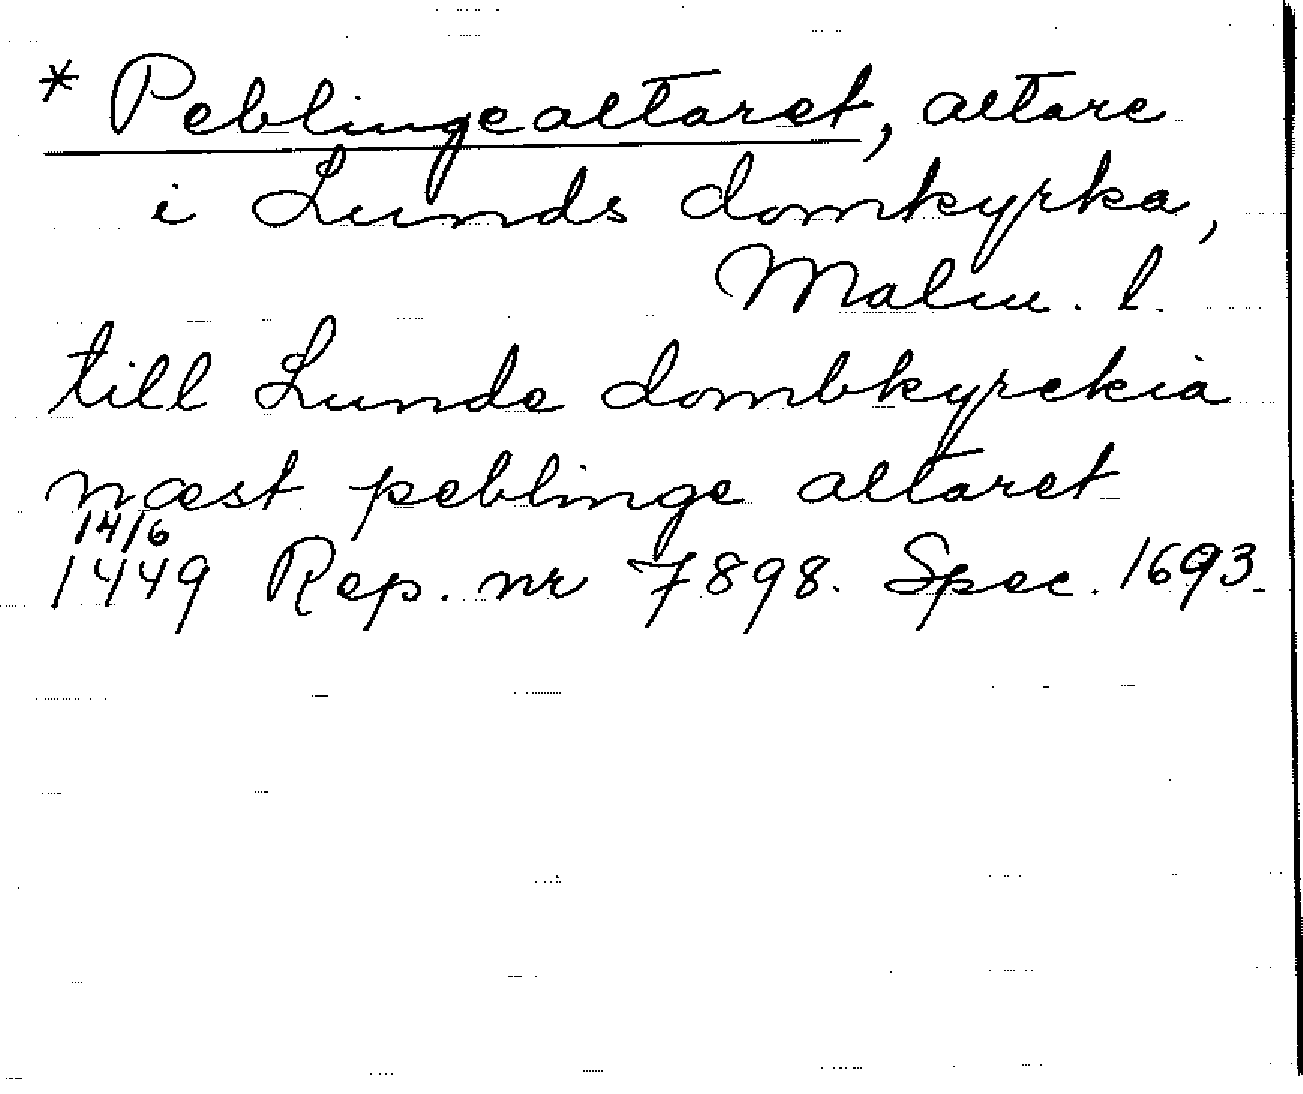 * Peblingealtaret, altare
i Lunds domkyrka,
Malm. l.
till Lunde dombkyrckia
næst peblinge altaret
14/6
1449 Rep. nr 7898. Spec. 1693.